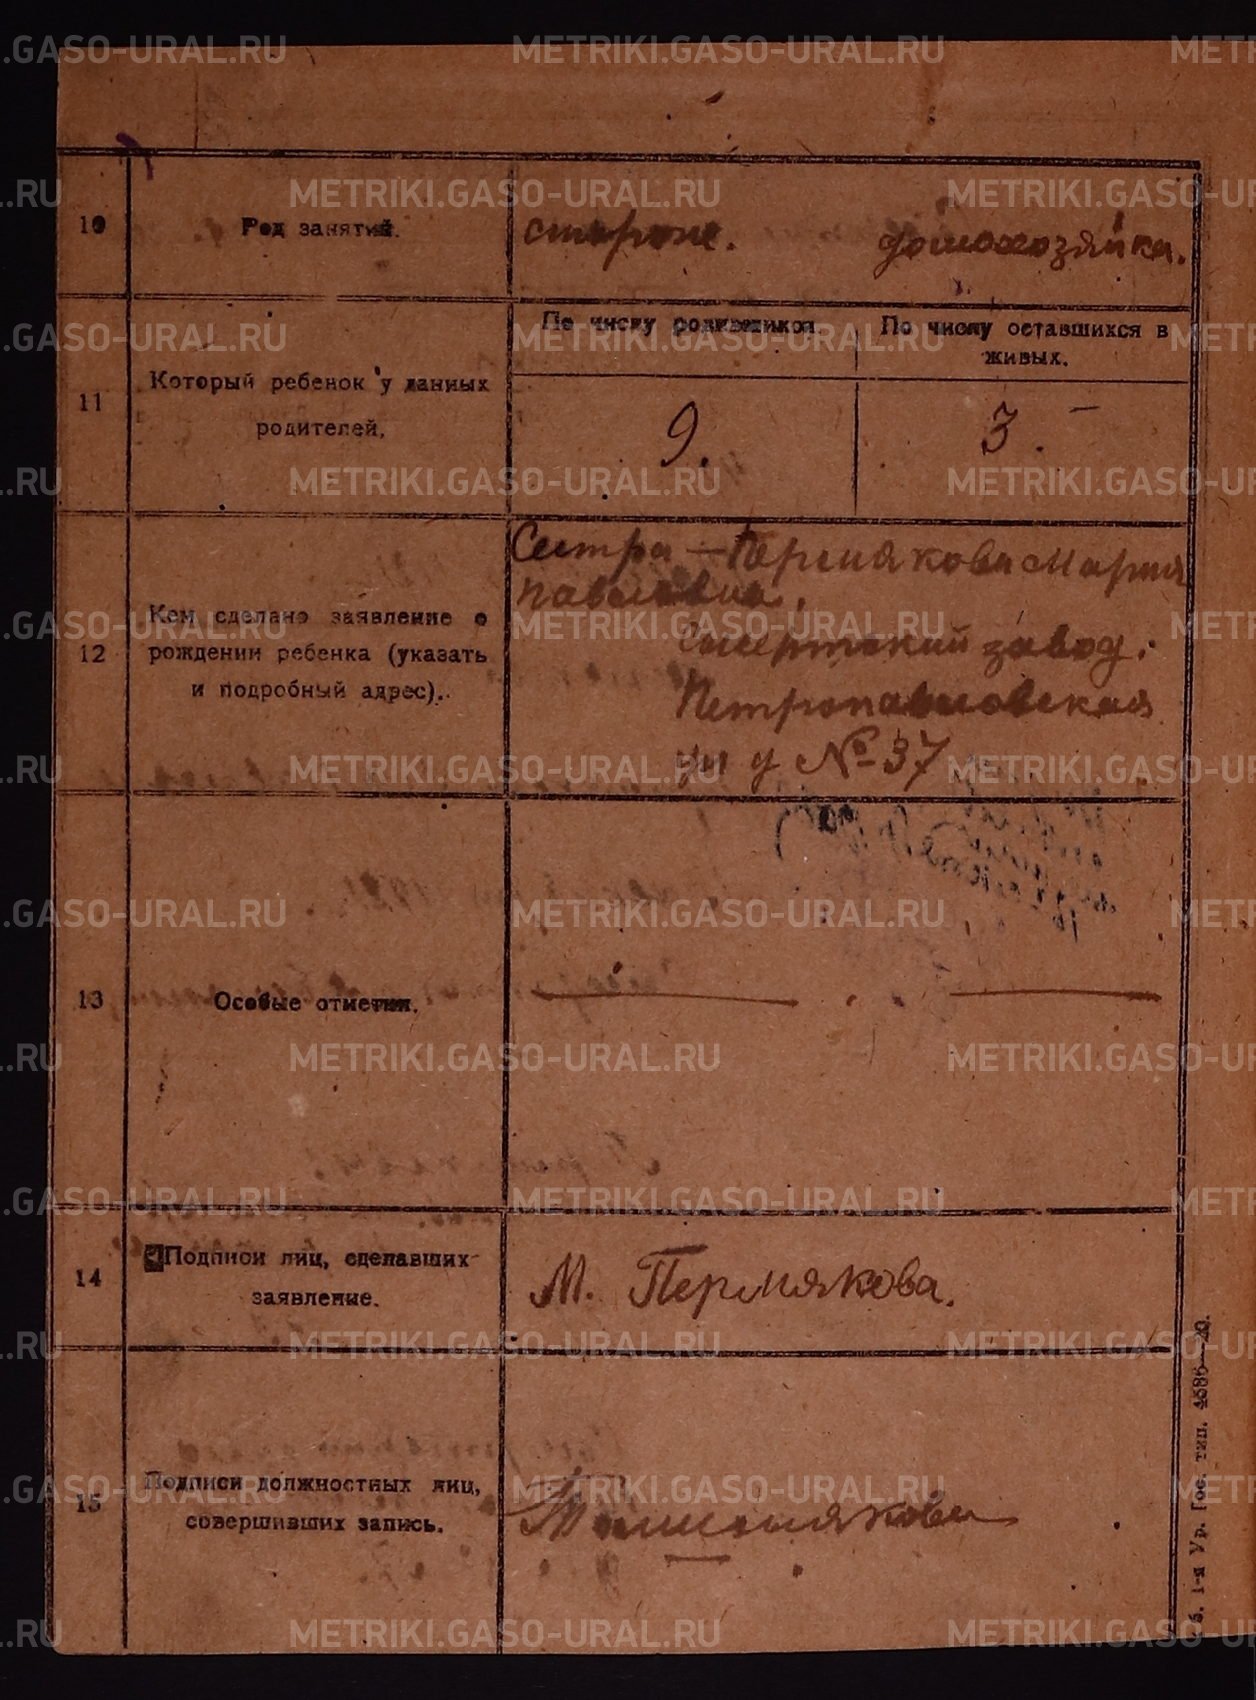 10
Род занятий.
сторож.
домохозяйка.
11
Который ребенок у данных
родителей.
По числу родившихся.
По числу оставшихся в
живых.
9.
3. –
12
Кем сделано заявление о
рождении ребенка (указать
и подробный адрес).
Сестра – Пермякова Мария
Павловна.
Сысертский завод.
Петропавловская
ул д № 37
13
Особые отметки.
14
Подписи лиц, сделавших
заявление.
М. Пермякова.
15
Подписи должностных лиц,
совершивших запись.
1-я Ур. Гос. тип. 4586—20.
METRIKI.GASO-URAL.RU